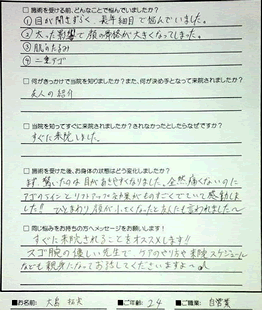 □ 施術を受ける前、どんなことで悩んでいましたか?
① 目が開きずらく 長年細目で悩んでいました。
② 太った影響で顔の骨格が大きくなってしまった。
③ 肌のたるみ
④ 二重アゴ
□ 何がきっかけで当院を知りましたか?また、何が決め手となって来院されましたか?
友人の紹介
□ 当院を知ってすぐに来院されましたか?されなかったとしたらなぜですか?
すぐに来院しました。
□ 施術を受けた後、お身体の状態はどう変化しましたか?
まず驚いたのは目があきやすくなりました。全然痛くないのに
アゴのラインとリフトアップ効果がものすごくでていて感動しま
した!! ひとまわり顔が小さくなったと友人にも言われました〜
□ 同じ悩みをお持ちの方へメッセージをお願いします!
すぐに来院されることをオススメします!!
スゴ腕の優しい先生で、ケアのやり方や来院スケジュール
なども親身になってお話してくださいますよ〜
□お名前: 大島 □ご年齢: 24 □ご職業: 自営業